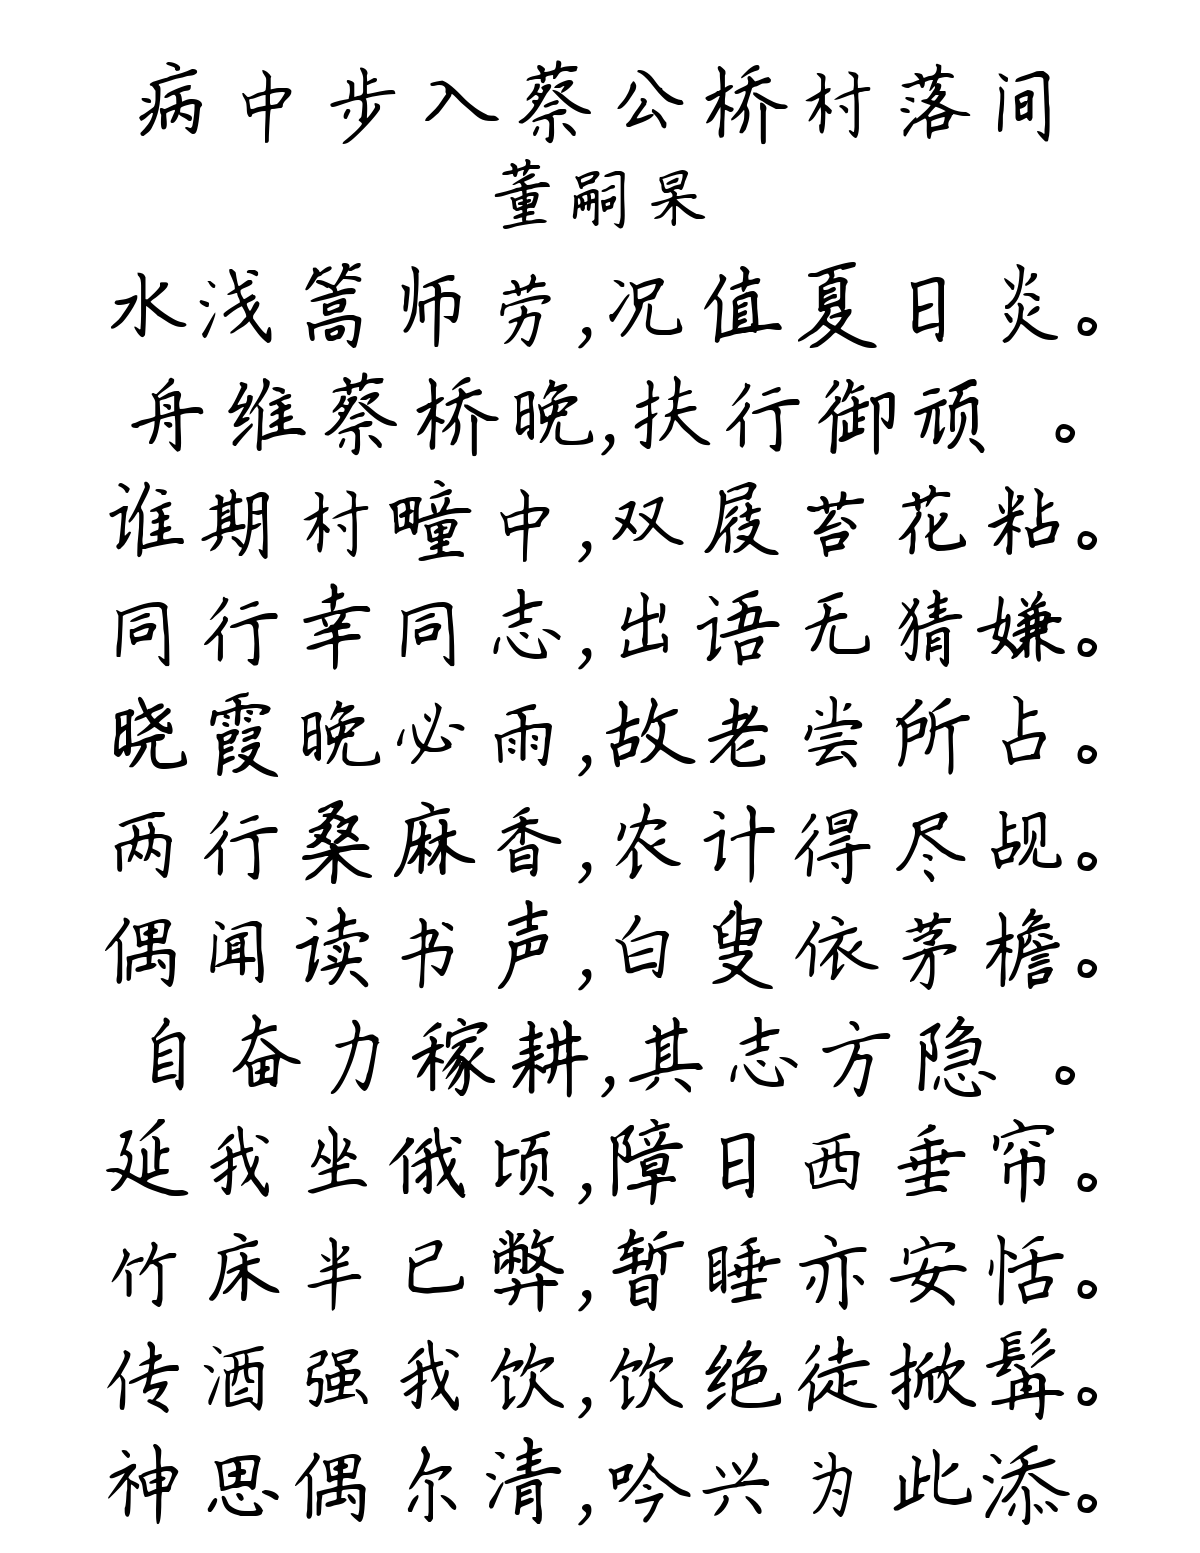 病中步入蔡公桥村落间
董嗣杲
水浅篙师劳,况值夏日炎。
舟维蔡桥晚,扶行御顽 。
谁期村疃中,双屐苔花粘。
同行幸同志,出语无猜嫌。
晓霞晚必雨,故老尝所占。
两行桑麻香,农计得尽觇。
偶闻读书声,白叟依茅檐。
自奋力稼耕,其志方隐 。
延我坐俄顷,障日西垂帘。
竹床半已弊,暂睡亦安恬。
传酒强我饮,饮绝徒掀髯。
神思偶尔清,吟兴为此添。